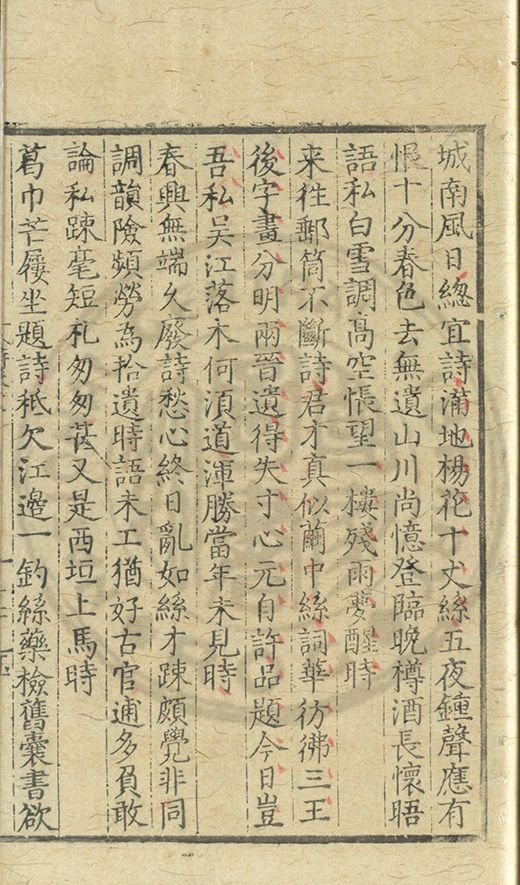 城南風日總宜詩滿地楊花十丈絲五夜鐘聲應有
恨十分春色去無遺山川尚憶登臨晚樽酒長懷晤
語私白雪調高空悵望一樓殘雨夢醒時
来往郵筒不斷詩君才真似繭中絲詞華彷彿三王
後字畫分明兩晉遺得失寸心元自許品題今日豈
吾私吴江落木何須道渾勝當年未見時
春興無端久廢詩愁心終日亂如絲才踈頗覺非同
調韻險頻勞為拾遺時語未工猶好古官逋多負敢
論私踈毫短札匆匆甚又是西垣上馬時
葛巾芒屨坐題詩秪欠江邊一釣絲藥檢舊囊書欲